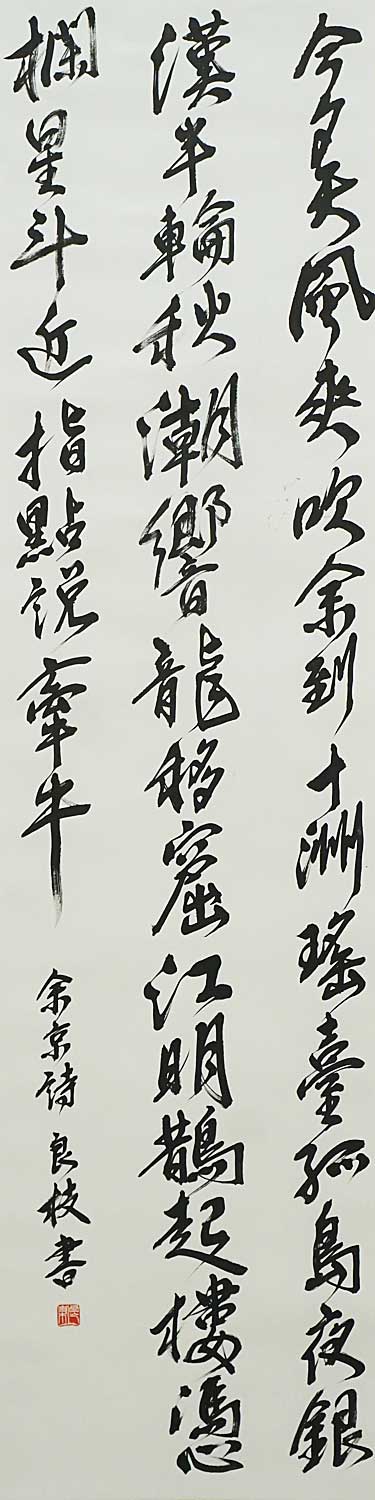 今夕天風爽吹余到十洲瑤臺孤島夜銀
漢半輪秋潮響龍移窟江明鵲起樓憑
欄星斗近指點說牽牛
余京詩 良枝書